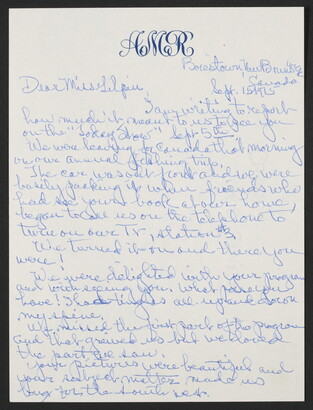 AMR
Boiestown, New Brunswick
Canada
Sept. 15, 1975
Dear Miss Gilpin,
I am writing to report
how much it meant to us to see you
on the "Today Show" Sept 5th.
We were leaving for Canada that morning
on our annual fishing trip.
The car was out front and we were
busily packing it when friends who
had seen your book at our home,
began to call us on the telephone to
turn on our TV, station #3.
We turned it on and there you
were!
We were delighted with your program
and with seeing you. What
have! I had tingles all up and down
my spine.
We missed the first part of the program
and that grieved us but we loved
the part we saw.
Your pictures were beautiful and
your subject matter made us
long for the South West.